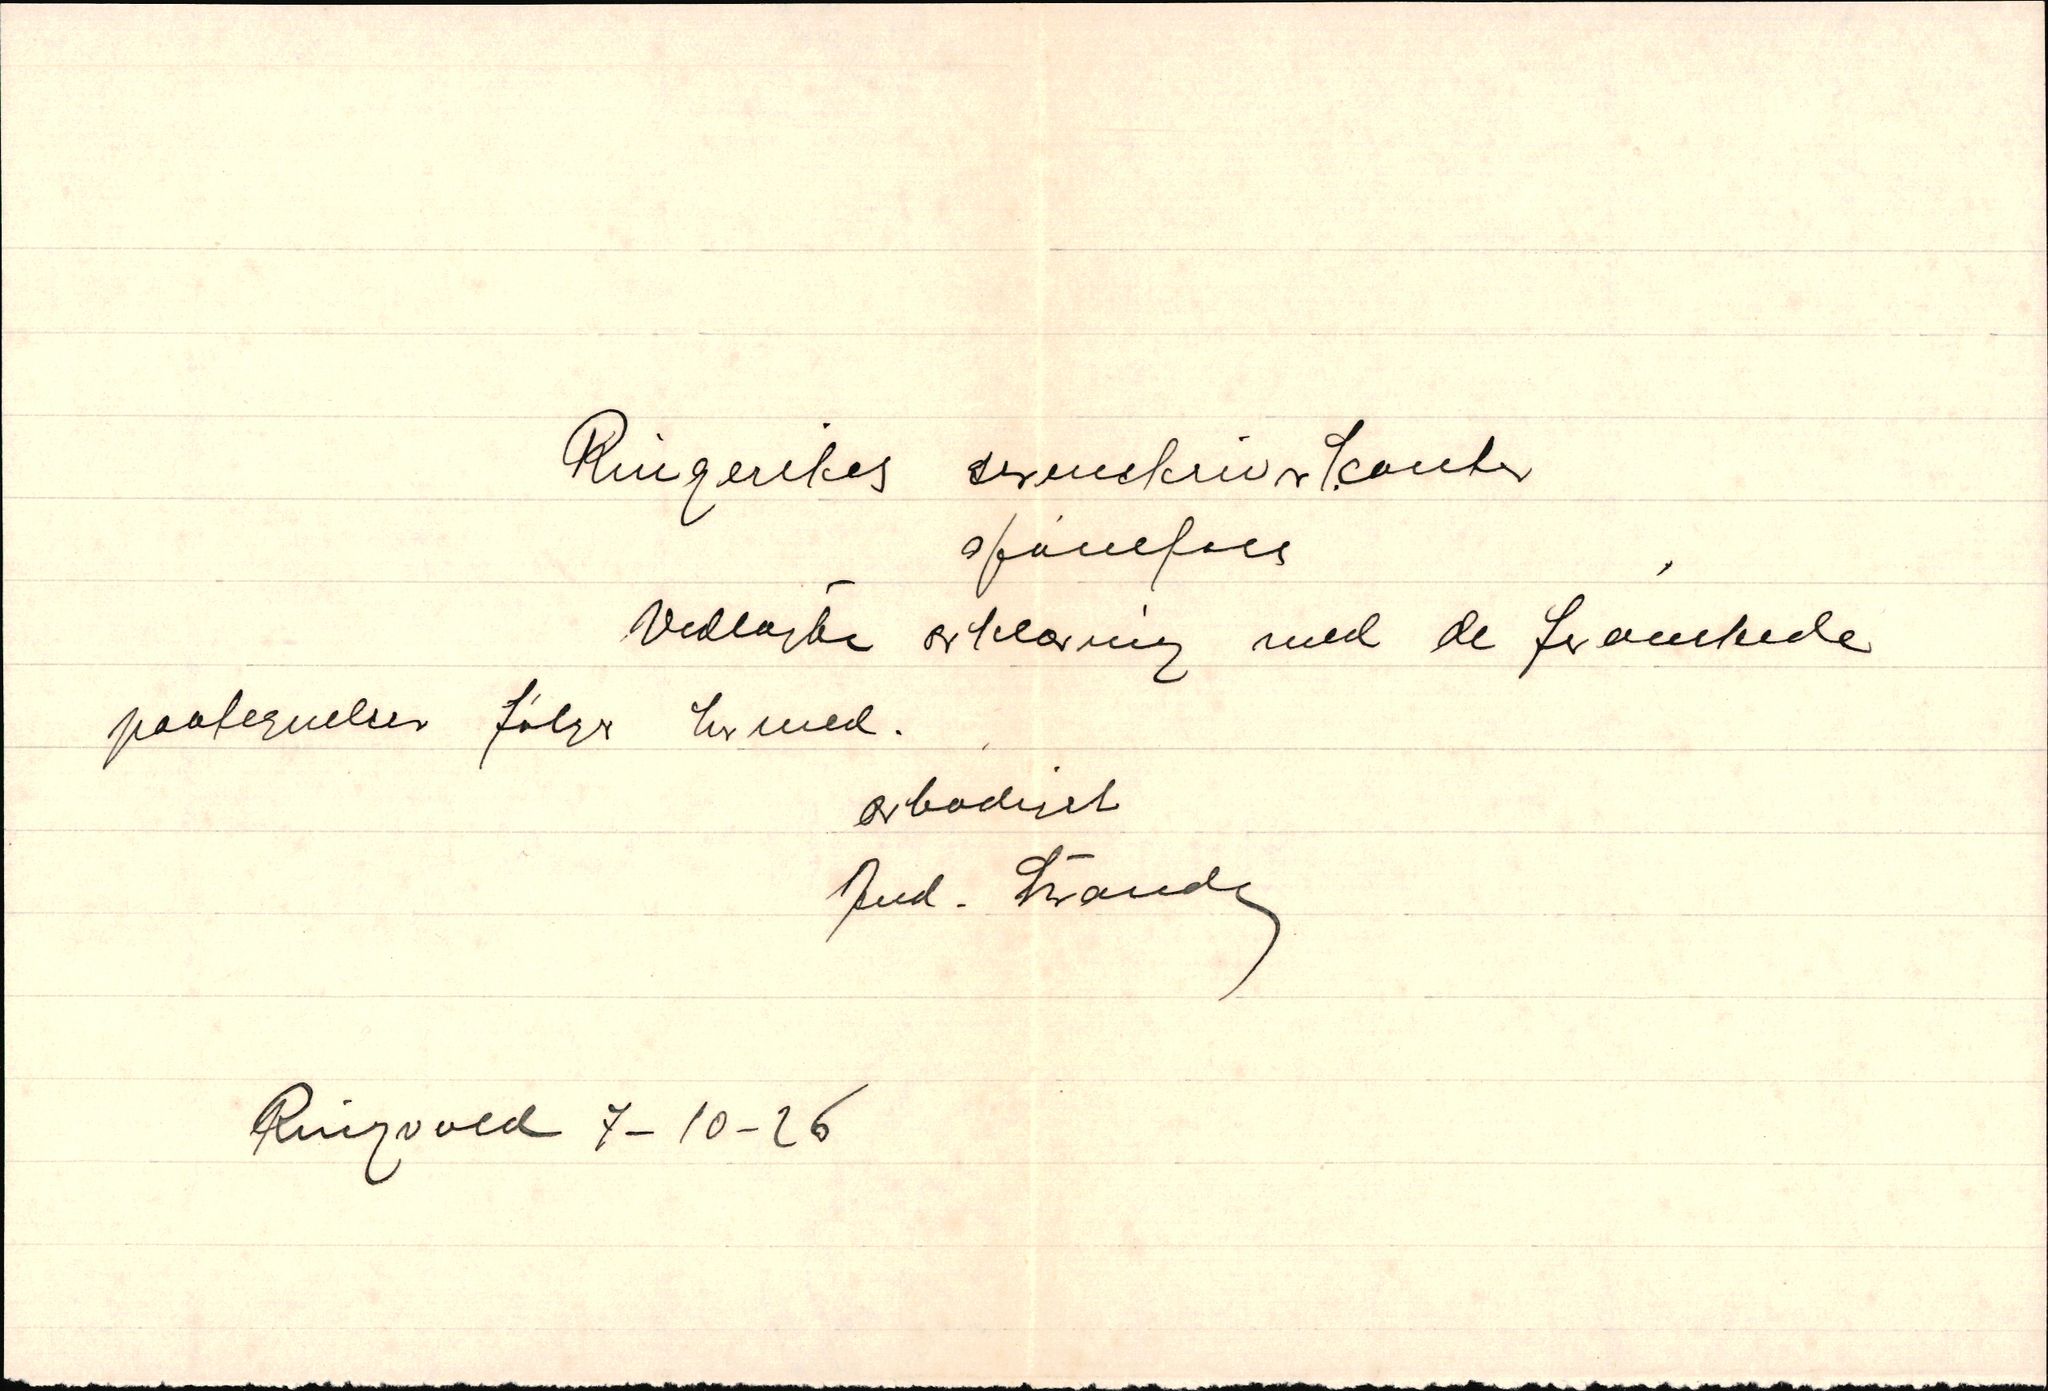 Ringerikes sorenskriverkontor
Hønefoss
Vedlagte erklæring med de forønskede
paategnelser følger hermed.
ærbødigst
And. Strande
Ringvold 7-10-26